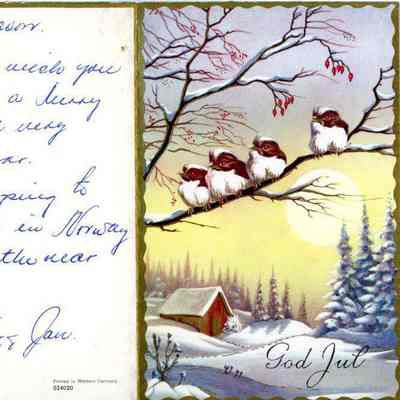 wish you
a Merry
very
to
in Norway
the near
Jan.
Printed in Western Germany
024020
God Jul